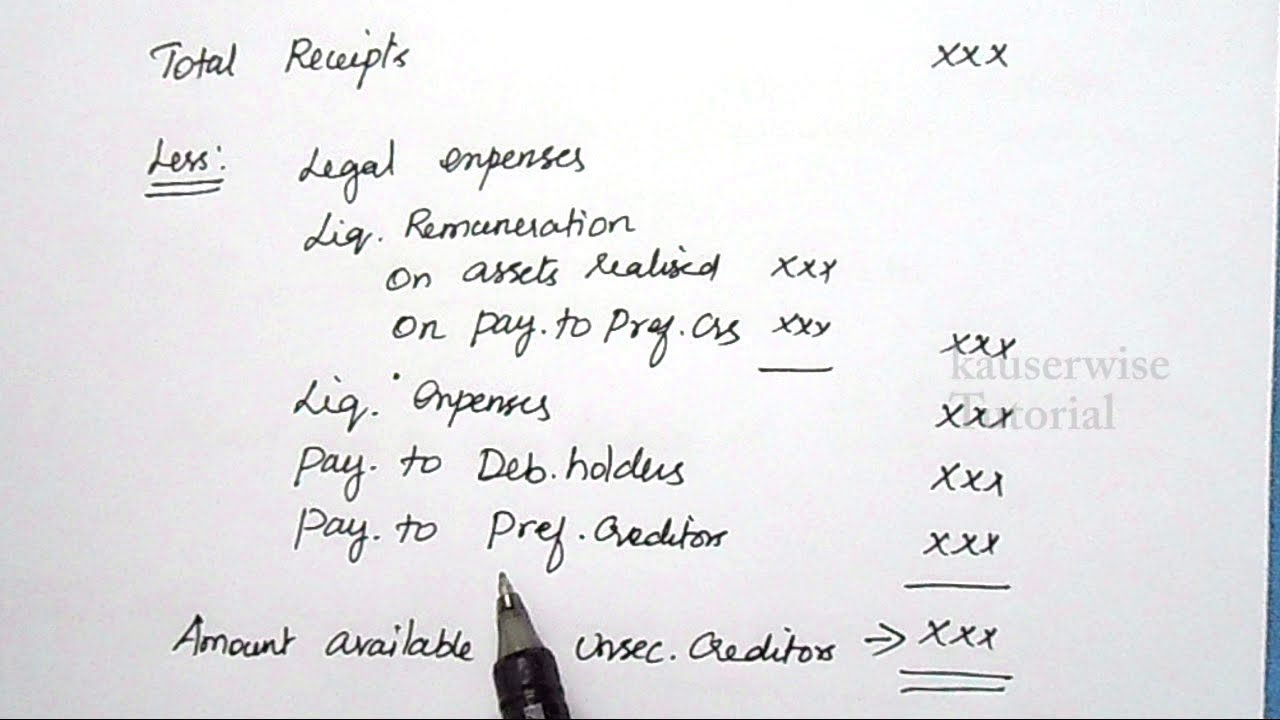 Total Receipts xxx
Less: Legal expenses
Liq. Remuneration
on assets realised xxx
on pay. to Pref. Crs xxx xxx
kauserwise
Liq. expenses xxx
Tutorial
Pay. to Deb. holders xxx
Pay. to Pref. Creditors xxx
Amount available unsec. Creditors → xxx